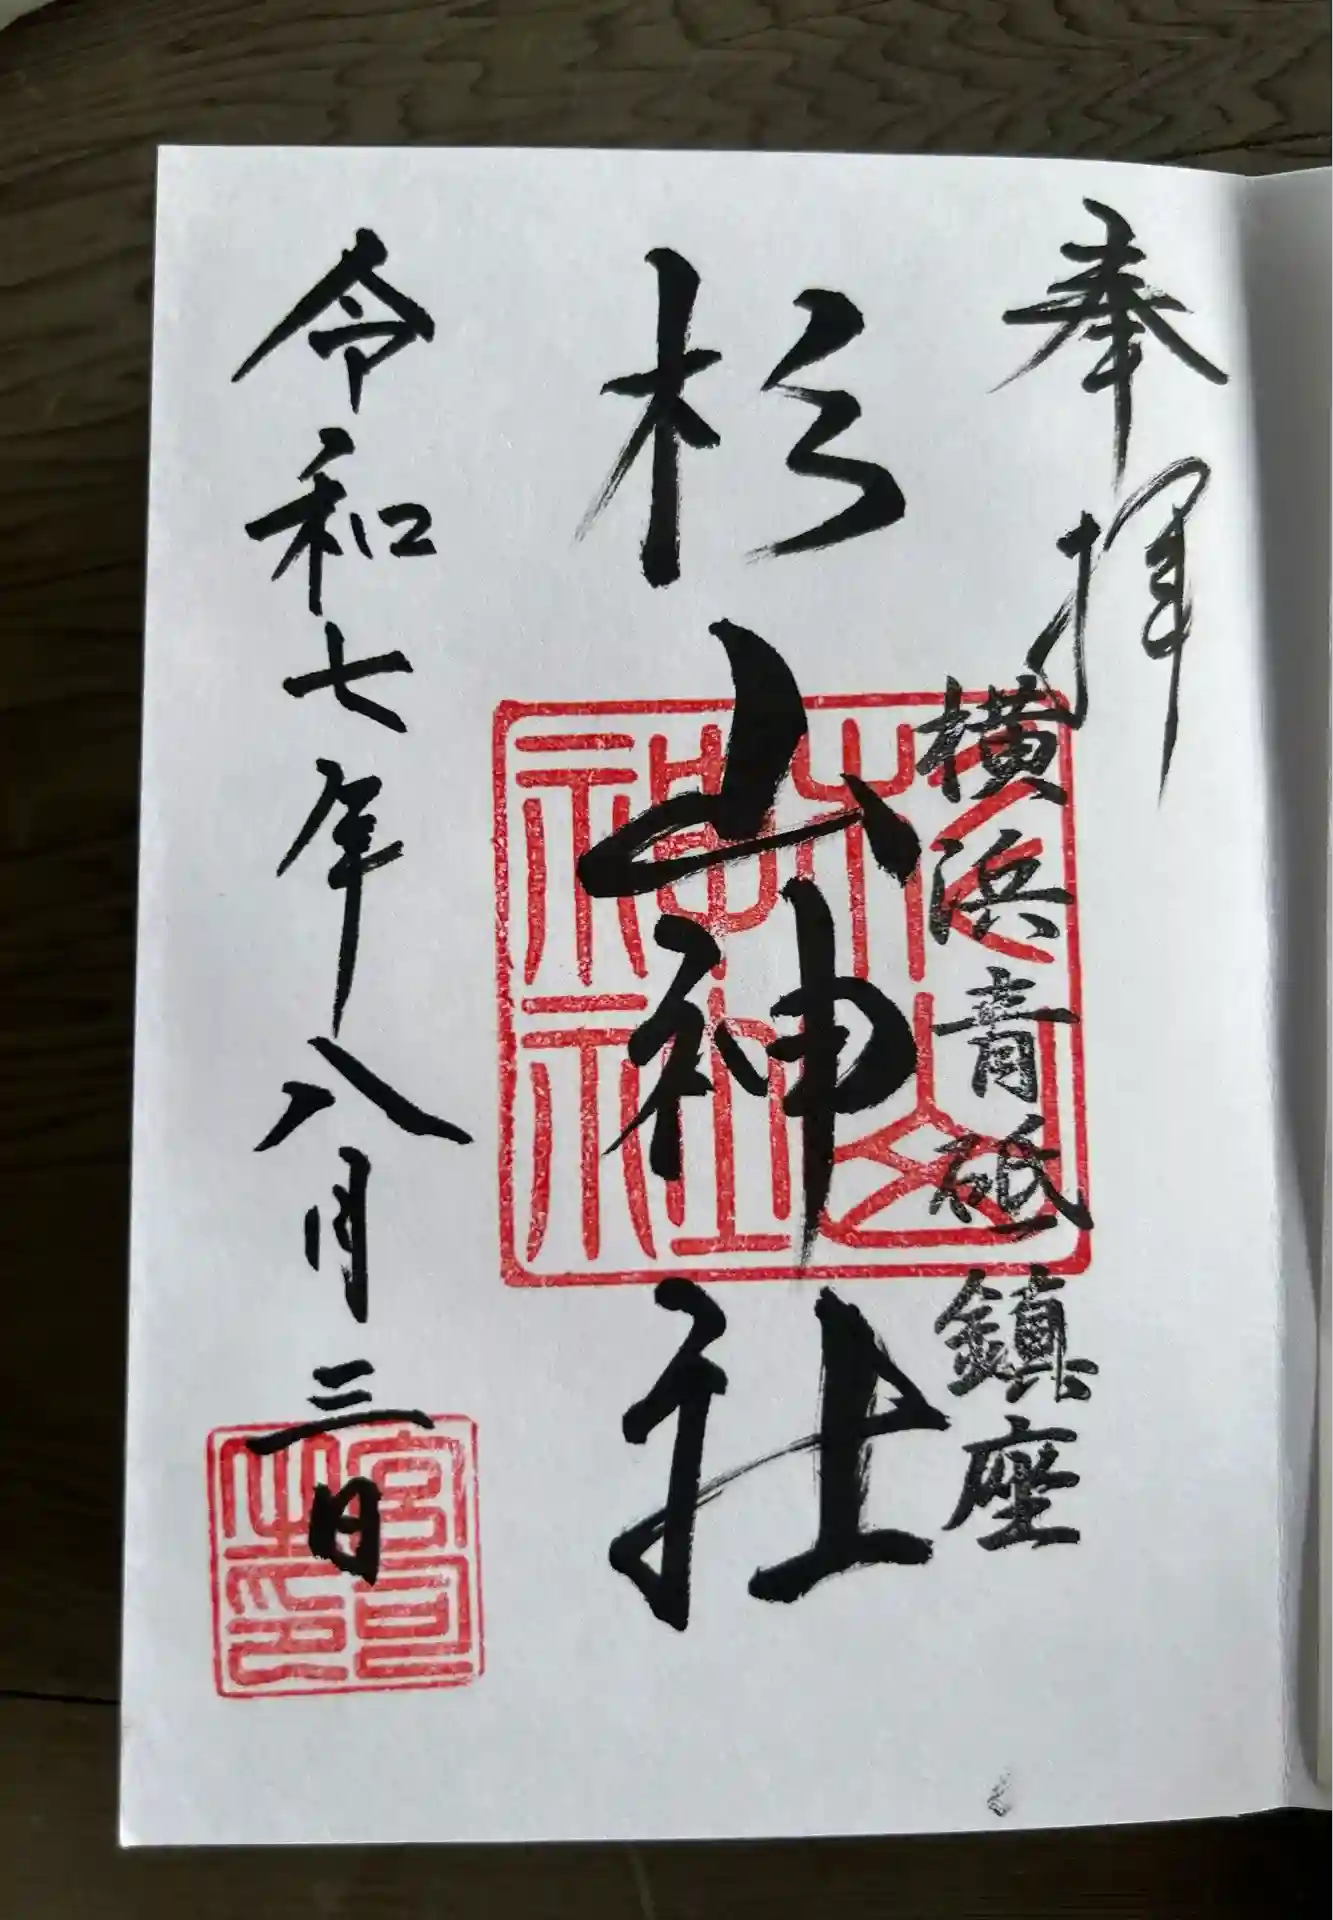 奉拝
横浜青砥鎮座
杉山神社
杉山神社
令和七年八月三日
宮司之印